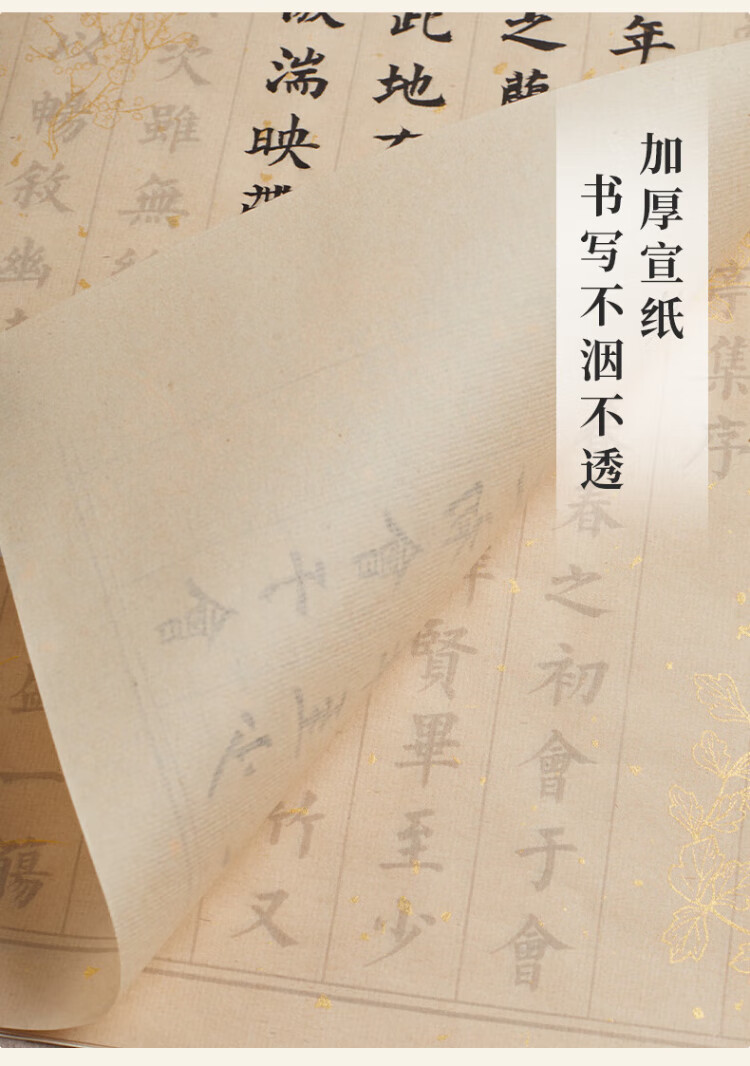 加厚宣纸
书写不洇不透
亭集序
年
春之初會于會
之蘭
賢畢至少
此地
竹又
湍映
次雖無
盛一觴
以暢敘幽